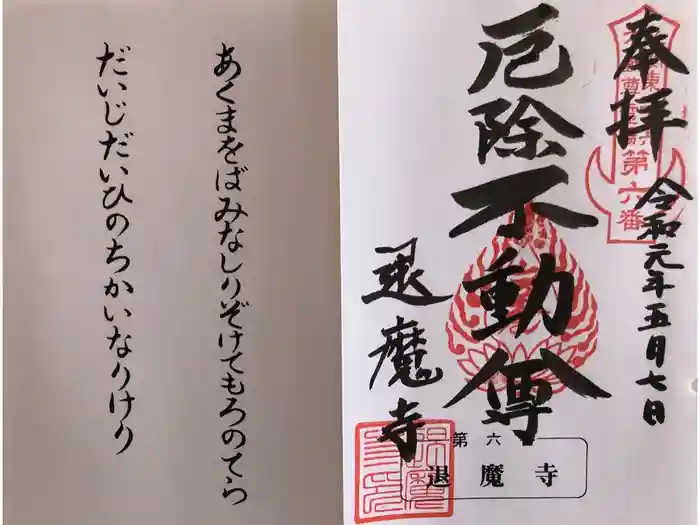 奉拝
令和元年五月七日
厄除不動尊
退魔寺
第六番
第六
退魔寺
あくまをばみなしりぞけてもろのてら
だいじだいひのちかいなりけり